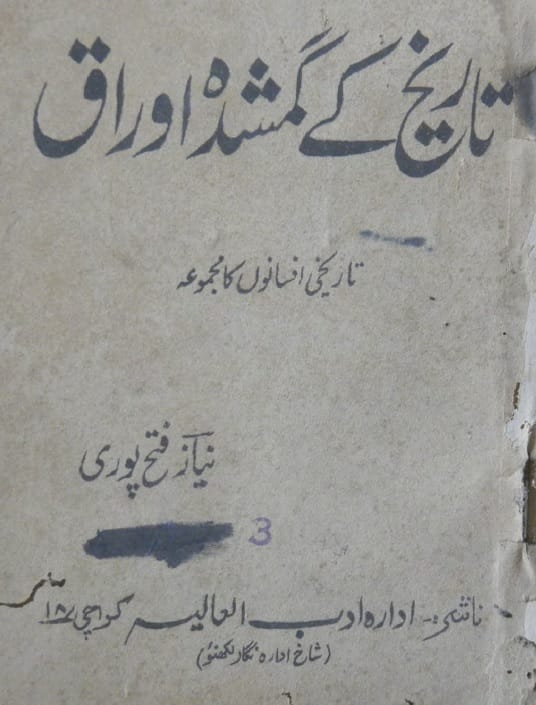 تاریخ کے گمشدہ اوراق
تاریخی افسانوں کا مجموعہ
نیاز فتح پوری
3
ناشر:- ادارہ ادب العالیہ کراچی ۱۸
(شاخ ادارہ نگار لکھنؤ)